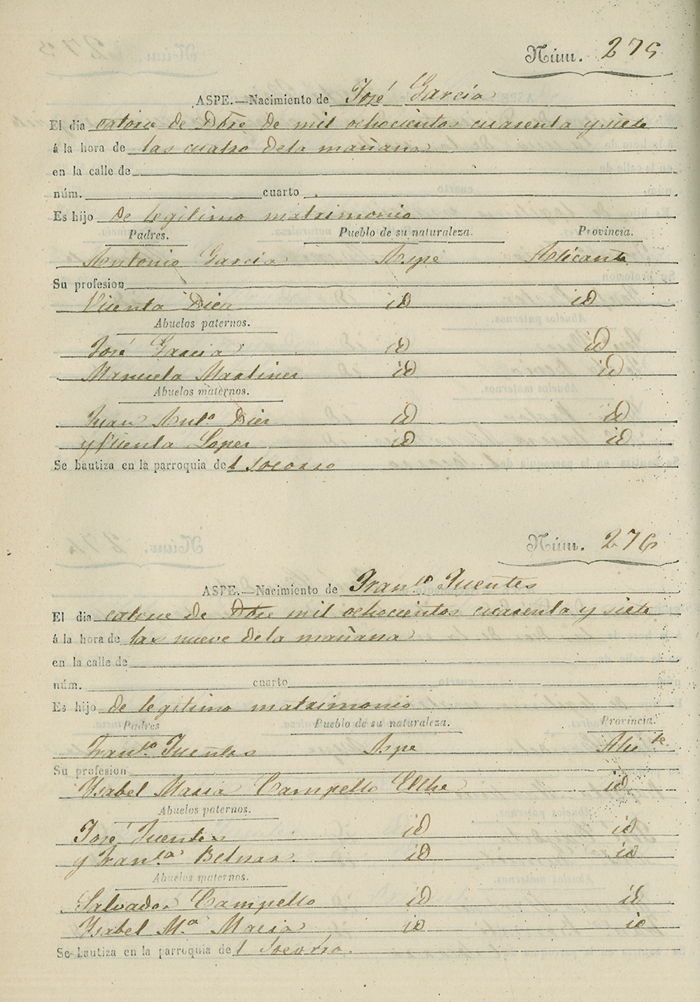 Núm. 275
ASPE.—Nacimiento de José Garcia
El dia catorce de Dbre de mil ochocientos cuarenta y siete
á la hora de las cuatro dela mañana
en la calle de
núm. cuarto
Es hijo de legitimo matrimonio
Padres. Pueblo de su naturaleza. Provincia.
Antonio Garcia Aspe Alicante
Su profesion
Vicenta Dies id id
Abuelos paternos.
José Garcia id id
Manuela Martines id id
Abuelos maternos.
Juan Antº Dies id id
y Visenta Lopes id id
Se bautiza en la parroquia del Socorro
Núm. 276
ASPE.—Nacimiento de Franco Fuentes
El dia catorce de Dbre mil ochocientos cuarenta y siete
á la hora de las nueve dela mañana
en la calle de
núm. cuarto
Es hijo de legitimo matrimonio
Padres Pueblo de su naturaleza. Provincia.
Franco Fuentes Aspe Alicte
Su profesion
Ysabel Maria Campello Elche id
Abuelos paternos.
José Fuentes id id
y Franca id id
Abuelos maternos.
Salvador Campello id id
Ysabel Mª Macia id id
Se bautiza en la parroquia del Socorro.